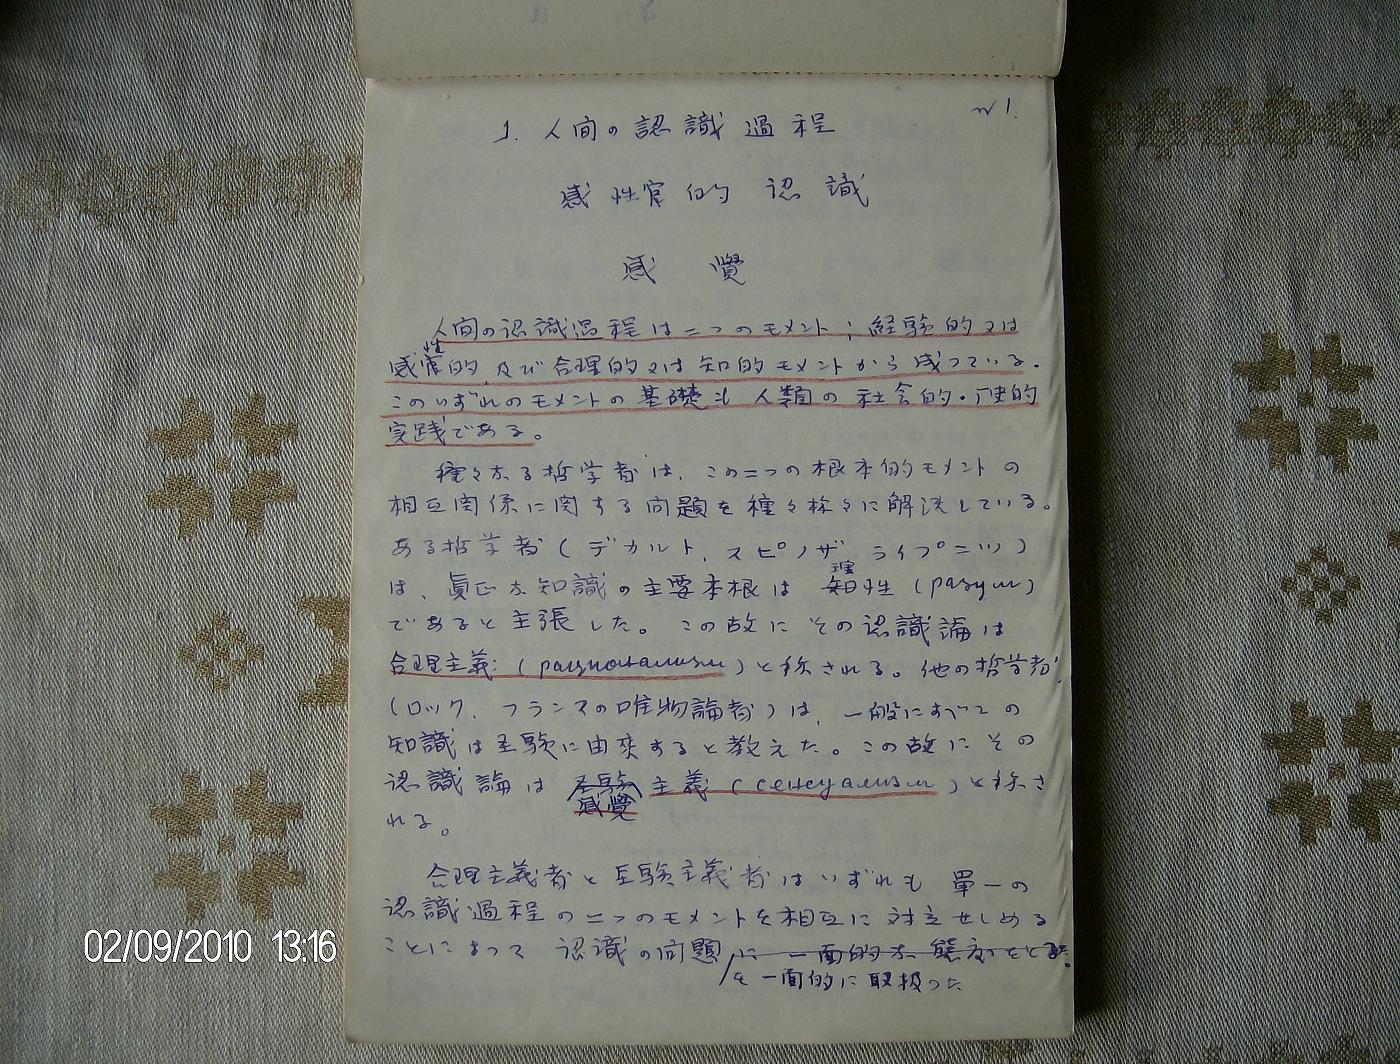 w 1.
1. 人间の認識過程
感性官的 認識
感 覺
人间の認識過程は二つのモメント；経験的又は
感性官的，及び合理的又は知的モメントから成っている．
このいずれのモメントの基礎も人類の社会的・歴史的
実践である。
種々なる哲学者は，この二つの根本的モメントの
相互関係に関する问題を種々様々に解決している。
ある哲学者（デカルト，スピノザ ライプニッツ）
は，眞正な知識の主要本根は 知理性（разум）
であると主張した。この故にその認識論は
合理主義（рационализм）と称される。他の哲学者
（ロック，フランスの唯物論者）は，一般にすべての
知識は圣験に由來すると教えた。この故にその
認識論は 圣験感覺主義（сенсуализм）と称さ
れる。
合理主義者と圣験主義者はいずれも 單一の
認識過程の二つのモメントを相互に対立せしめる
ことによって 認識の问題に一面的な態度をとった．
を一面的に取扱った
02/09/2010 13:16